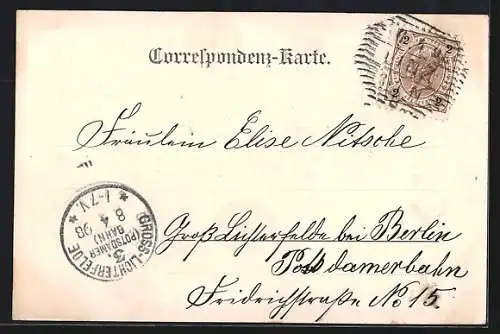 Correspondenz-Karte.
2 2
2 2
Fräulein Elise Nitsche
GROSS-LICHTERFELDE
3
(POTSDAMER
BAHN)
8 4 98
* 1-7 V. *
Groß Lichterfelde bei Berlin
Potsdamerbahn
Fridrichstraße No 15.